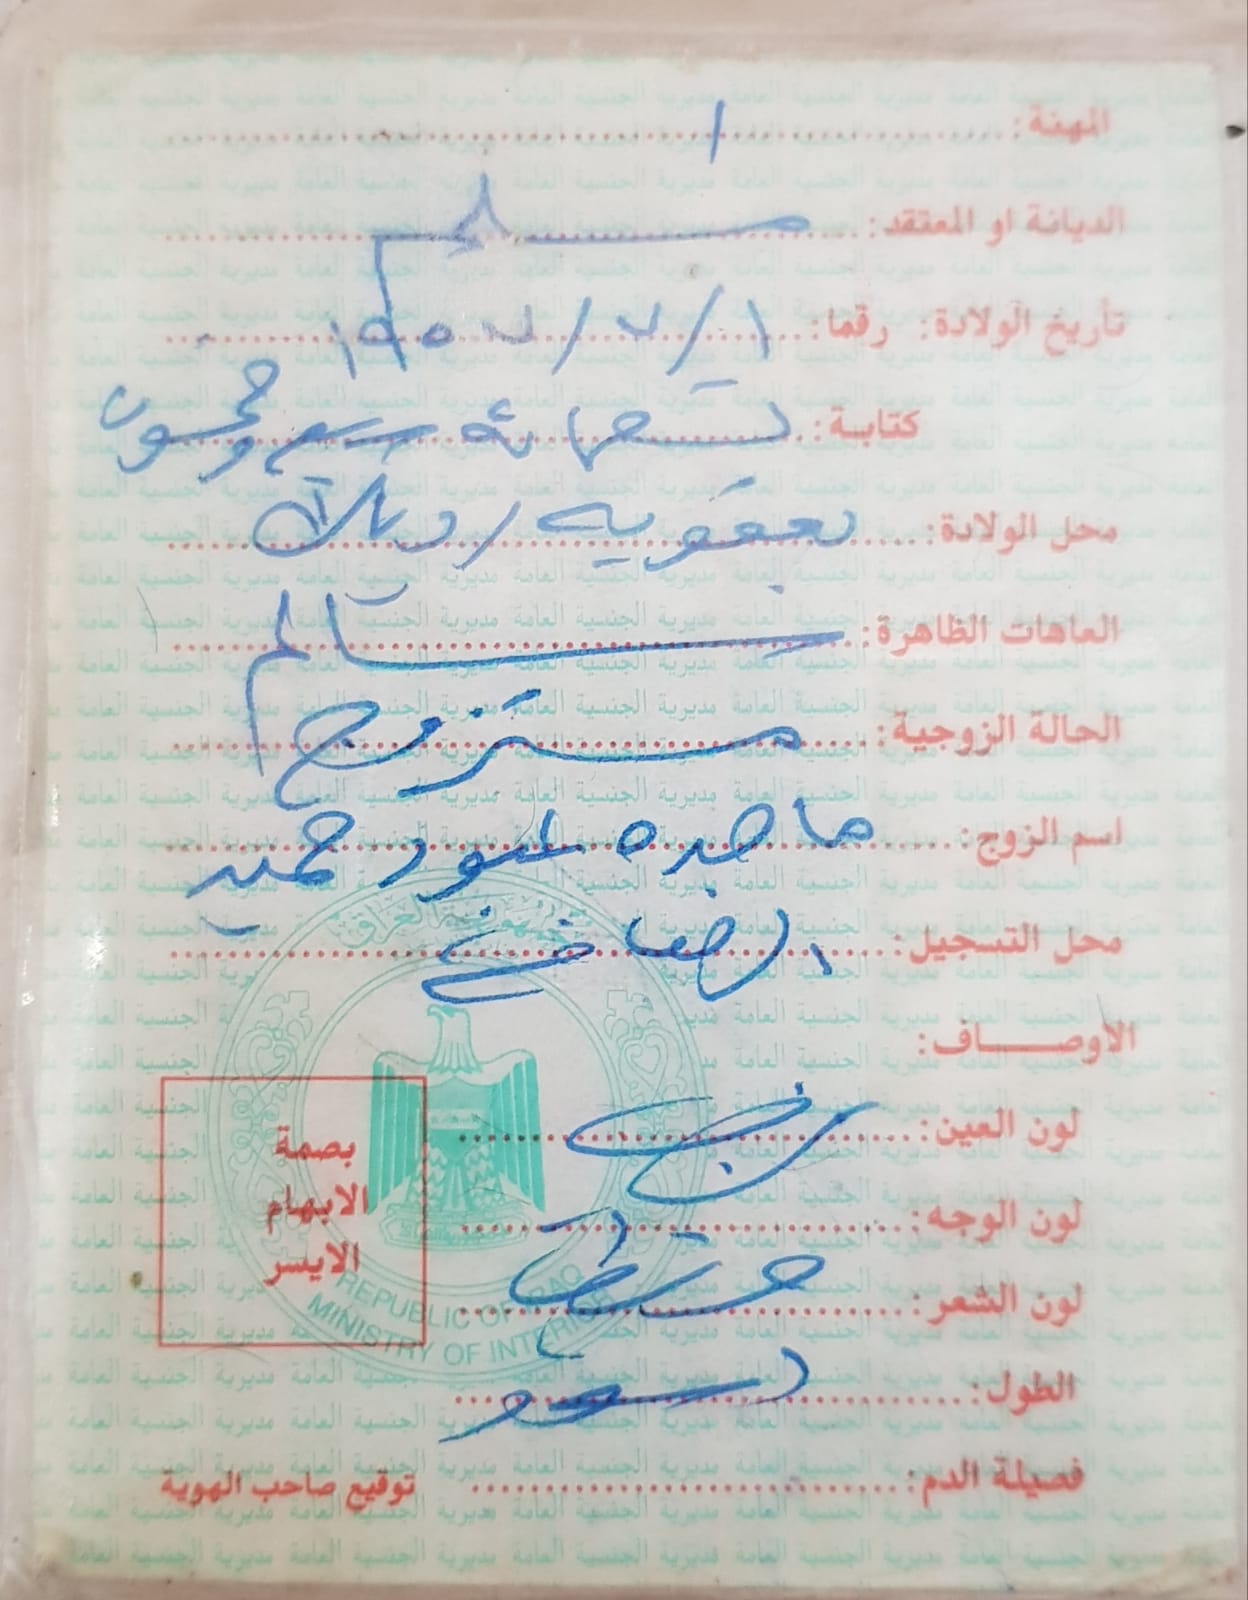 المهنة: /
الديانة او المعتقد: مسلم
تأريخ الولادة: رقما: ١/٧/١٩٥٧
كتابة: تسعمائة سبع وخمسون
محل الولادة: بعقوبه / ديالى
العاهات الظاهرة: سالم
الحالة الزوجية: متزوج
اسم الزوج: ماجده عبود حميد
محل التسجيل:
الاوصاف:
لون العين:
لون الوجه:
لون الشعر:
الطول:
فصيلة الدم:
بصمة
الابهام
الايسر
توقيع صاحب الهوية
جمهورية العراق
REPUBLIC OF IRAQ
MINISTRY OF INTERIOR
مديرية الجنسية العامة